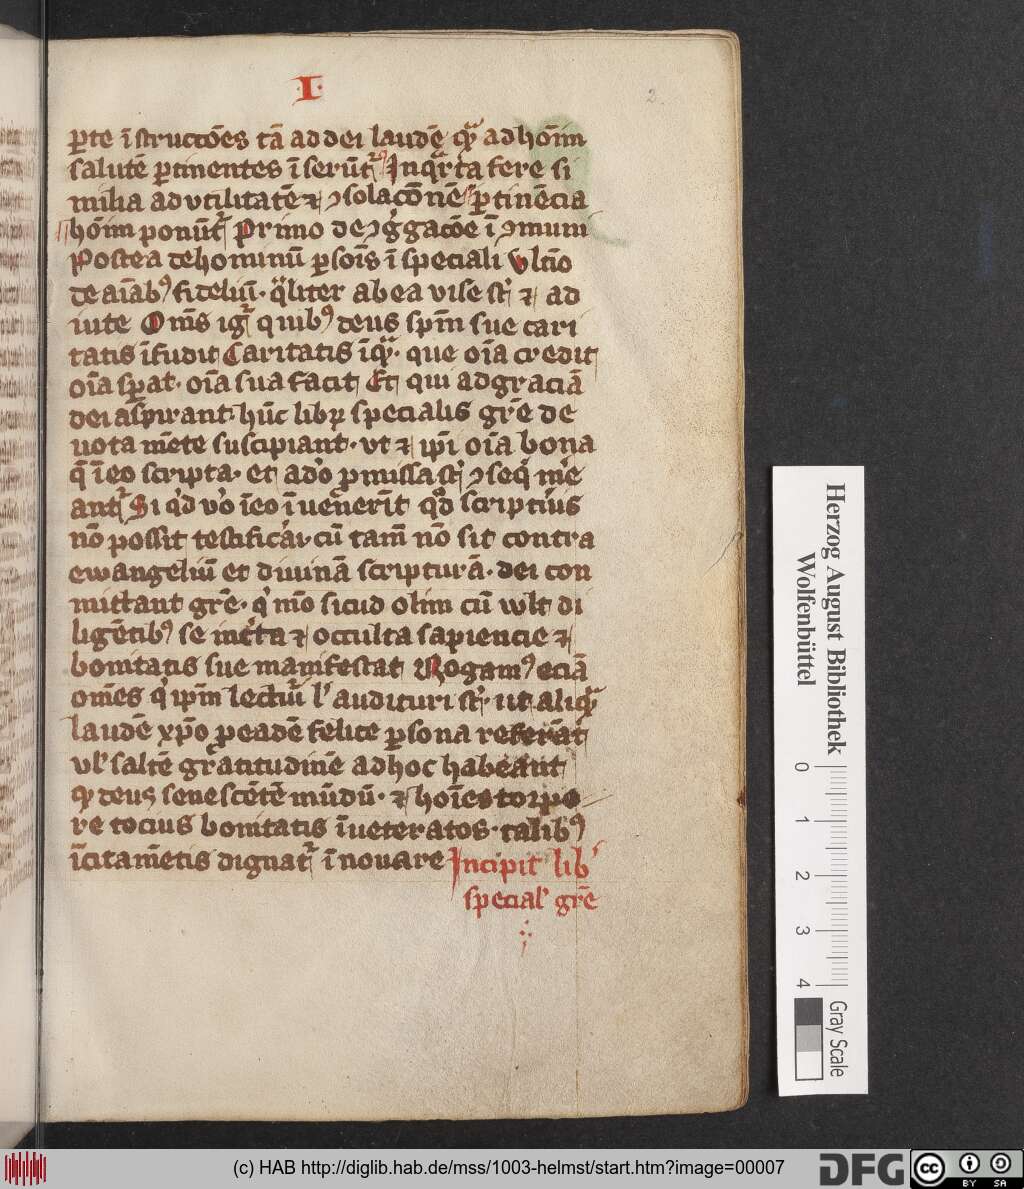 I
2.
ꝑte īstructōes tā ad dei laudē qᷓ ad hōim
salutē ꝑtinentes īserūtᷣ In qᷓrta fere si
milia ad vtilitatē ⁊ ꝯsolacōnē ꝑtinēcia
hōim ponūtᷣ Primo de ꝯgͥgacōe ī ꝯmuni
Postea de hominū ꝑsōis ī speciali vltīo
de aīabꝰ fideliū· qͣliter ab ea vise st̄ ⁊ ad
iute Om̄s igᷣ quibꝰ deus spm̄ sue cari
tatis īfudit Caritatis īqᷓ· que oīa credit
oīa sꝑat· oīa sua facit Et qui ad graciā
dei aspirant· hūc libꝝ specialis grē de
uota mēte suscipiant· vt ⁊ ip̄i oīa bona
q̄ ī eo scripta· et ad ꝓmissa st̄ ꝯseqͥ
antᷣ Si qͥd vͦo ī eo īuenerīt qd̄
nō possit testificāi· cū tam̄ nō sit contra
ewangeliū et diuinā scripturā· dei con
mittant grē· qͥ mō sicud olim cū wlt di
ligētibꝰ se īcͤta ⁊ occulta sapiencie ⁊
bonitatis sue manifestat Rogamꝰ eciā
om̄es qͥ ip̄m lectuͥ lꝰ audituri st̄· ut aliqᷓ
laudē xp̄o ꝓ eadē felice ꝑsona referāt
vlꝰ saltē gratitudinē ad hoc habeant
qꝫ deus senescētē mūdū· ⁊ hoīes torpo
re tocius bonitatis īueteratos· talibꝰ
īcitam̄etis dignatᷣ īnouare Incipit lib̄
specialꝰ grē
Herzog August Bibliothek
Wolfenbüttel
0 1 2 3 4
Gray Scale
(c) HAB http://diglib.hab.de/mss/1003-helmst/start.htm?image=00007
DFG
cc
BY SA